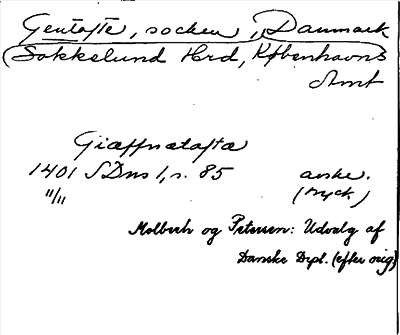 Gentofte, socken, Danmark
(Sokkelund Hrd, Københavns
Amt
Giæffnætoftæ
1401 SDns 1, s. 85 avskr.
11/11 (tryck)
Molbech og Petersen: Udvalg af
Danske Dipl. (efter orig)